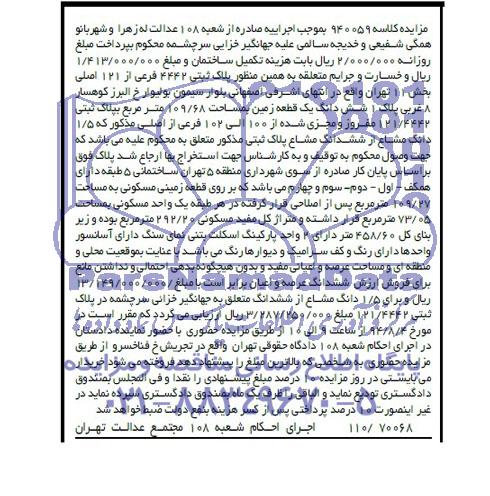 مزایده کلاسه 940059 بموجب اجراییه صادره از شعبه 108 عدالت له زهرا و شهربانو
همگی شفیعی و خدیجه سالمی علیه جهانگیر خزایی سرچشمه محکوم بپرداخت مبلغ
روزانه 2/000/000 ریال بابت هزینه تکمیل ساختمان و مبلغ 1/413/000/000
ریال و خسارت و جرایم متعلقه به همین منظور پلاک ثبتی 4442 فرعی از 121 اصلی
بخش 11 تهران واقع در انتهای اشرفی اصفهانی بلوار سیمون بولیوار خ البرز کوهسار
8 غربی پلاک 1 شش دانگ یک قطعه زمین بمساحت 109/68 متر مربع بپلاک ثبتی
121/4442 مفروز و مجزی شده از 100 الی 102 فرعی از اصلی مذکور که 1/5
دانگ مشاع از ششدانگ مشاع پلاک ثبتی مذکور متعلق به محکوم علیه می باشد که
جهت وصول محکوم به توقیف و به کارشناس جهت استخراج بها ارجاع شد پلاک فوق
براساس پایان کار صادره از سوی شهرداری منطقه 5 تهران ساختمانی 5 طبقه دارای
همکف - اول - دوم- سوم و چهارم می باشد که بر روی قطعه زمینی مسکونی به مساحت
109/27 مترمربع پس از اصلاحی قرار گرفته در هر طبقه یک واحد مسکونی بمساحت
73/05 مترمربع قرار داشته و متراژ کل مفید مسکونی 292/20 مترمربع بوده و زیر
بنای کل 458/60 متر دارای 2 واحد پارکینگ اسکلت بتنی نمای سنگ دارای آسانسور
واحدها دارای رنگ و کف سرامیک و دیوارها رنگ می باشد با عنایت بموقعیت محلی و
منطقه ای و مساحت عرصه و اعیانی مفید و بدون هیچگونه بدهی احتمالی و نداشتن مانع
برای فروش ارزش ششدانگ عرصه و اعیان برابر است با مبلغ 13/149/000/000
ریال و برای 1/5 دانگ مشاع از ششدانگ متعلق به جهانگیر خزائی سرچشمه در پلاک
ثبتی 121/4442 مبلغ 3/287/250/000 ریال ارزیابی می گردد که مقرر است در
مورخ 94/8/4 از ساعت 9 الی 10 از طریق مزایده حضوری با حضور نماینده دادستان
در اجرای احکام شعبه 108 دادگاه حقوقی تهران واقع در تجریش خ فناخسرو از طریق
مزایده حضوری به شخصی که بالاترین مبلغ را پیشنهاد دهد فروخته می شود خریدار
می بایستی در روز مزایده 10 درصد مبلغ پیشنهادی را نقدا و فی المجلس بصندوق
دادگستری تودیع نماید و الباقی را ظرف یک ماه بصندوق دادگستری سپرده نماید در
غیر اینصورت 10 درصد پرداختی پس از کسر هزینه بنفع دولت ضبط خواهد شد
110/70068 اجرای احکام شعبه 108 مجتمع عدالت تهران